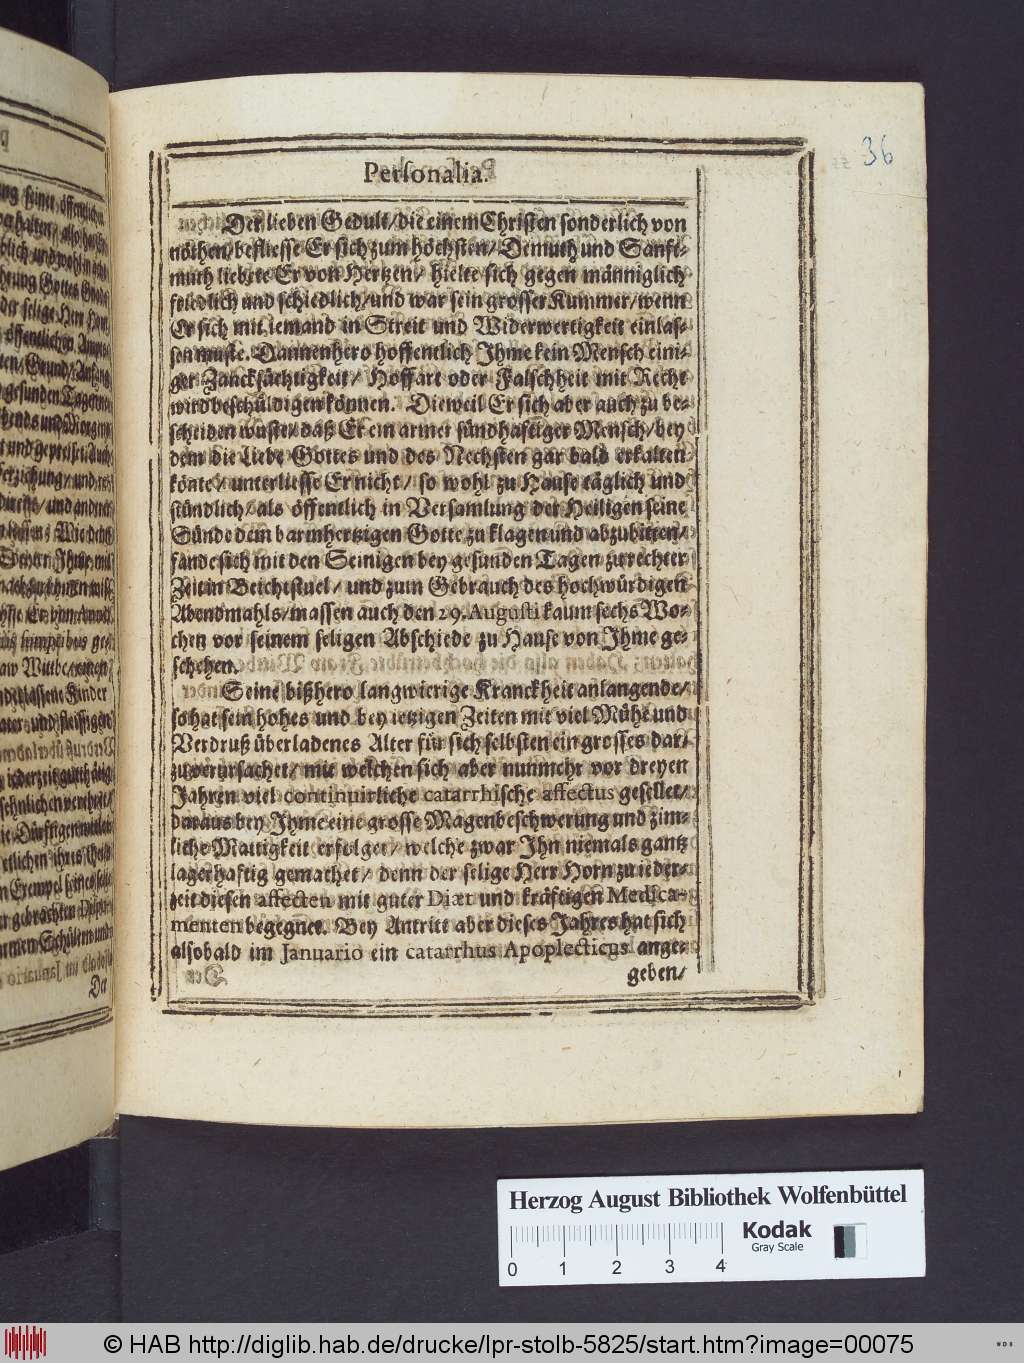 36
Personalia.
Der lieben Gedult/ die einem Christen sonderlich von
nöthen/ befliesse Er sich zum höchsten/ Demuth und Sanft-
muth liebete Er von Hertzen/ hielte sich gegen männiglich
friedlich und schiedlich/ und war sein grosser Kummer/ wenn
Er sich mit iemand in Streit und Widerwertigkeit einlas-
sen muste. Dannenhero hoffentlich Ihme kein Mensch eini-
ger Zancksüchtigkeit/ Hoffart oder Falschheit mit Recht
wird beschüldigen können. Dieweil Er sich aber auch zu be-
scheiden wuste/ daß Er ein armer sündhafftiger Mensch/ bey
dem die Liebe Gottes und des Nechsten gar bald erkalten
könte/ unterliesse Er nicht/ so wohl zu Hause täglich und
stündlich/ als öffentlich in Versamlung der Heiligen seine
Sünde dem barmhertzigen Gotte zu klagen und abzubitten/
fande sich mit den Seinigen bey gesunden Tagen zu rechter
Zeit in Beichtstuel/ und zum Gebrauch des hochwürdigen
Abendmahls/ massen auch den 29. Augusti kaum sechs Wo-
chen vor seinem seligen Abschiede zu Hause von Ihme ge-
schehen.
Seine bißhero langwierige Kranckheit anlangende/
so hat sein hohes und bey ietzigen Zeiten mit viel Mühe und
Verdruß überladenes Alter für sich selbsten ein grosses dar-
zu verursachet/ mit welchen sich aber nunmehr vor dreyen
Jahren viel continuirliche catarrhische affectus gesellet/
daraus bey Ihme eine grosse Magenbeschwerung und zim-
liche Mattigkeit erfolget/ welche zwar Ihn niemals gantz
lagerhaftig gemachet/ denn der selige Herr Horn zu ieder-
zeit diesen affecten mit guter Diæt und kräftigen Medica-
menten begegnet. Bey Antritt aber dieses Jahres hat sich
alsobald im Januario ein catarrhus Apoplecticus ange-
geben/
Herzog August Bibliothek Wolfenbüttel
Kodak
Gray Scale
0 1 2 3 4
© HAB http://diglib.hab.de/drucke/lpr-stolb-5825/start.htm?image=00075